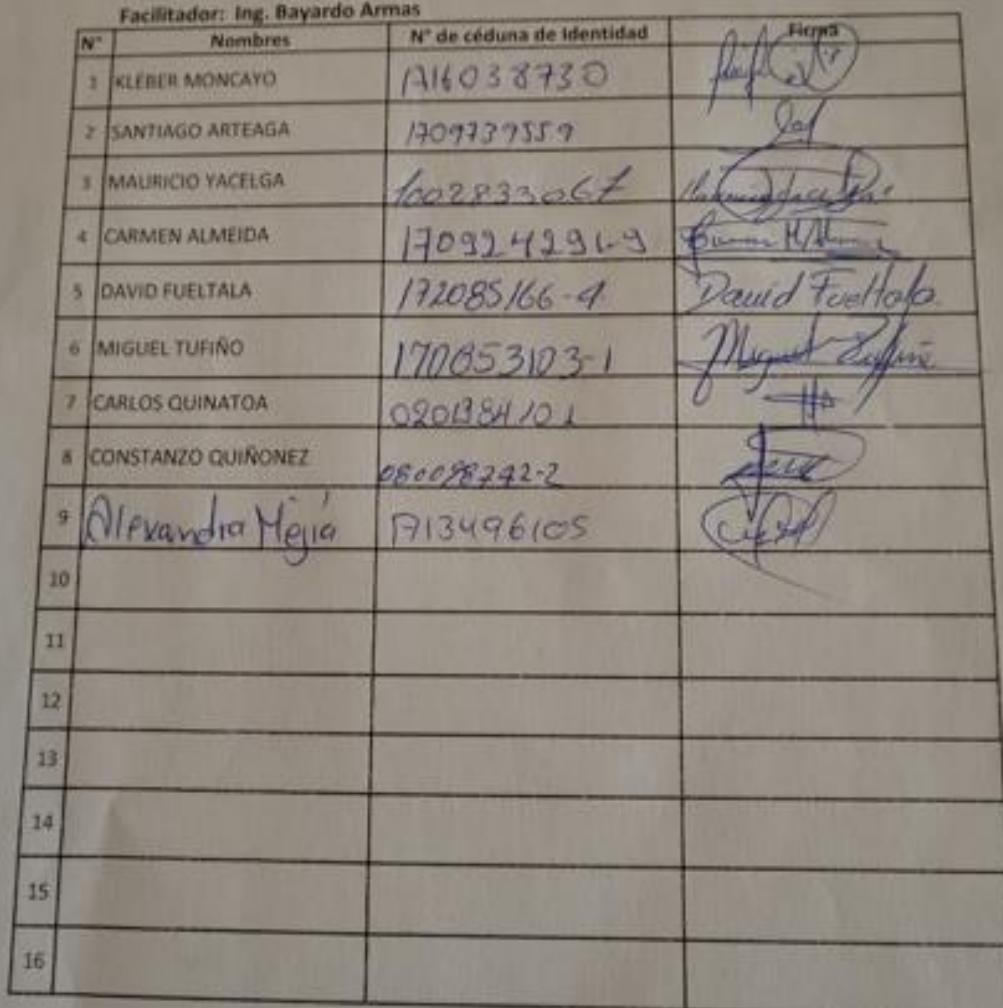 Facilitador: Ing. Bayardo Armas
N° Nombres N° de céduna de Identidad Firma
1 KLEBER MONCAYO 1716038730
2 SANTIAGO ARTEAGA 1709739559
3 MAURICIO YACELGA 1002833067
4 CARMEN ALMEIDA 170924291-9
5 DAVID FUELTALA 172085166-4 David Fueltala
6 MIGUEL TUFIÑO 170853103-1 Miguel Tufiño
7 CARLOS QUINATOA
8 CONSTANZO QUIÑONEZ
9 Alexandra Mejía 1713496105
10
11
12
13
14
15
16